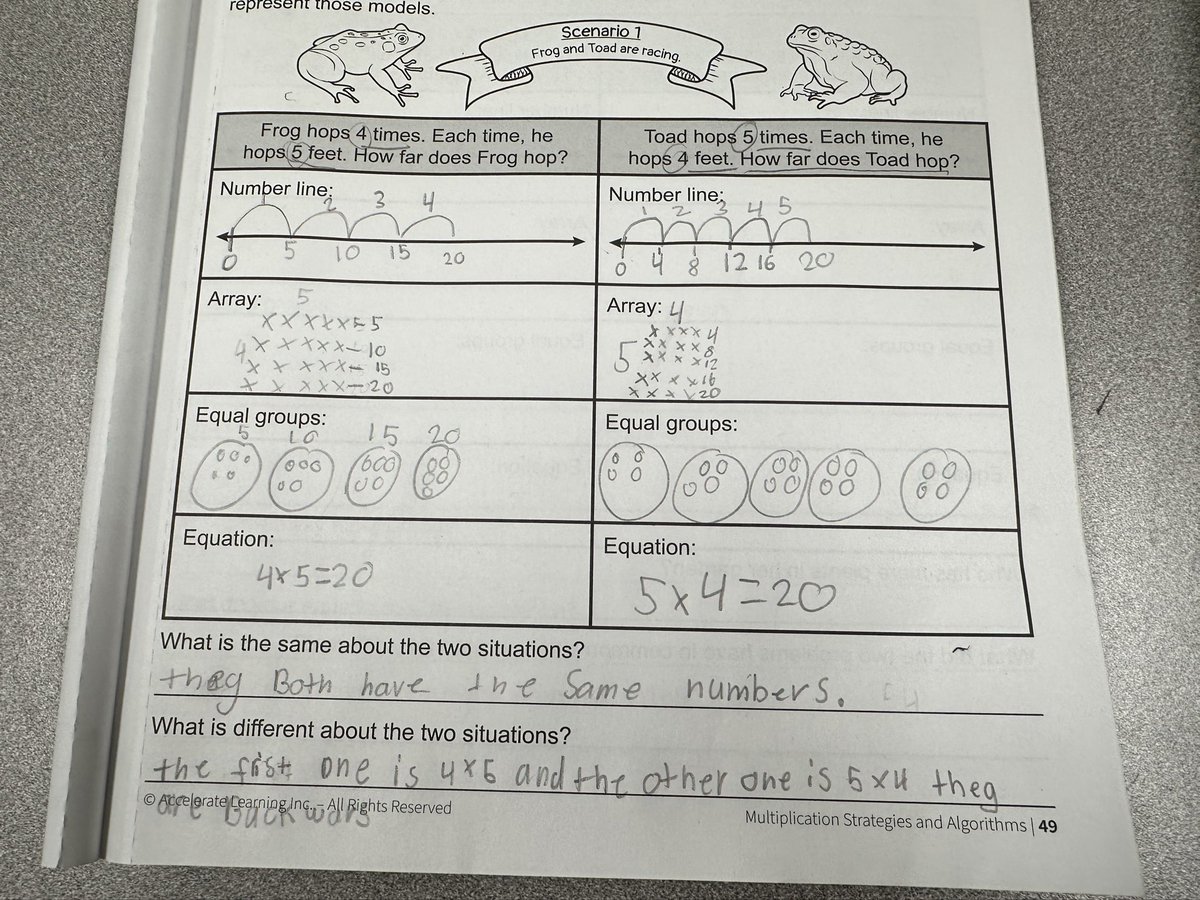 represent those models.
Scenario 1
Frog and Toad are racing.
Frog hops 4 times. Each time, he
hops 5 feet. How far does Frog hop?
Toad hops 5 times. Each time, he
hops 4 feet. How far does Toad hop?
Number line:
1 2 3 4
0 5 10 15 20
Number line:
1 2 3 4 5
0 4 8 12 16 20
Array: 5
XXXXX=5
4 XXXXX-10
XXXXX-15
XXXXX-20
Array: 4
XXXX 4
5 XXXX 8
XXXX 12
XXXX 16
XXXX 20
Equal groups:
5 10 15 20
Equal groups:
Equation:
4x5=20
Equation:
5x4=20
What is the same about the two situations?
they Both have the Same numbers.
What is different about the two situations?
the frist one is 4x5 and the other one is 5x4 they
are Backwars
© Accelerate Learning Inc. – All Rights Reserved
Multiplication Strategies and Algorithms | 49